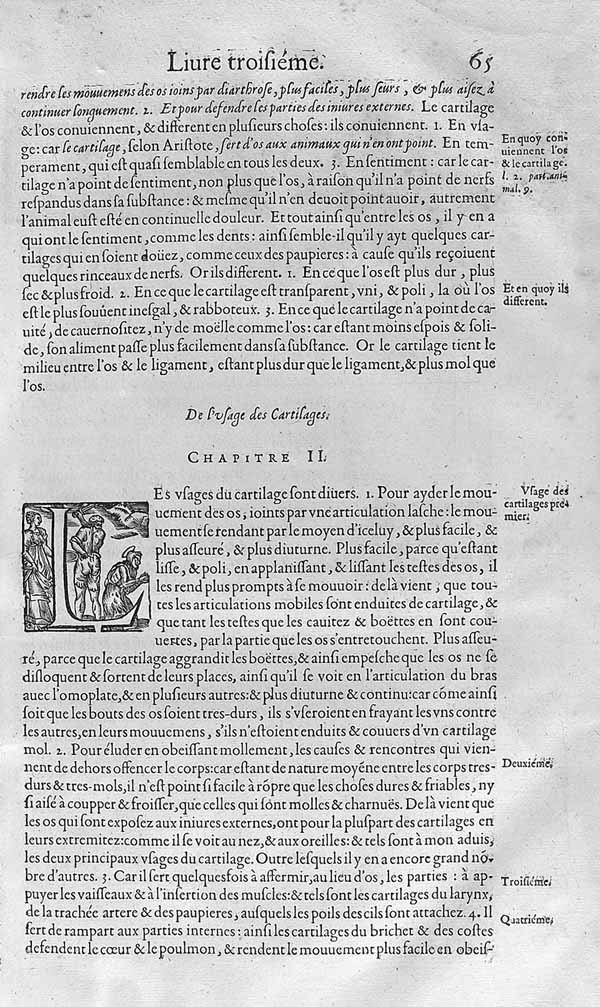 Liure troisiéme. 65
rendre ses mouuemens des os ioins par diarthrose, plus faciles, plus seurs, & plus aisez à
continuer longuement. 2. Et pour defendre les parties des iniures externes. Le cartilage
& l'os conuiennent, & different en plusieurs choses: ils conuiennent. 1. En vsa-
ge: car le cartilage, selon Aristote, sert d'os aux animaux qui n'en ont point. En tem-
perament, qui est quasi semblable en tous les deux. 3. En sentiment: car le car-
tilage n'a point de sentiment, non plus que l'os, à raison qu'il n'a point de nerfs
respandus dans sa substance: & mesme qu'il n'en deuoit point auoir, autrement
l'animal eust esté en continuelle douleur. Et tout ainsi qu'entre les os, il y en a
qui ont le sentiment, comme les dents: ainsi semble-il qu'il y ayt quelques car-
tilages qui en soient doüez, comme ceux des paupieres: à cause qu'ils reçoiuent
quelques rinceaux de nerfs. Or ils different. 1. En ce que l'os est plus dur, plus
sec & plus froid. 2. En ce que le cartilage est transparent, vni, & poli, la où l'os
est le plus souuent inesgal, & rabboteux. 3. En ce que le cartilage n'a point de ca-
uité, de cauernositez, n'y de moëlle comme l'os: car estant moins espois & soli-
de, son aliment passe plus facilement dans sa substance. Or le cartilage tient le
milieu entre l'os & le ligament, estant plus dur que le ligament, & plus mol que
l'os.
En quoy con-
uiennent l'os
& le cartilage.
l. 2. part. ani-
mal. 9.
Et en quoy ils
different.
De l'vsage des Cartilages.
CHAPITRE II.
LEs vsages du cartilage sont diuers. 1. Pour ayder le mou-
uement des os, ioints par vne articulation lasche: le mou-
uement se rendant par le moyen d'iceluy, & plus facile, &
plus asseuré, & plus diuturne. Plus facile, parce qu'estant
lisse, & poli, en applanissant, & lissant les testes des os, il
les rend plus prompts à se mouuoir: de là vient, que tou-
tes les articulations mobiles sont enduites de cartilage, &
que tant les testes que les cauitez & boëttes en sont cou-
uertes, par la partie que les os s'entretouchent. Plus asseu-
ré, parce que le cartilage aggrandit les boëttes, & ainsi empesche que les os ne se
disloquent & sortent de leurs places, ainsi qu'il se voit en l'articulation du bras
auec l'omoplate, & en plusieurs autres: & plus diuturne & continu: car cõme ainsi
soit que les bouts des os soient tres-durs, ils s'vseroient en frayant les vns contre
les autres, en leurs mouuemens, s'ils n'estoient enduits & couuers d'vn cartilage
mol. 2. Pour éluder en obeissant mollement, les causes & rencontres qui vien-
nent de dehors offencer le corps: car estant de nature moyéne entre les corps tres-
durs & tres-mols, il n'est point si facile à rõpre que les choses dures & friables, ny
si aisé à coupper & froisser, que celles qui sont molles & charnuës. De là vient que
les os qui sont exposez aux iniures externes, ont pour la pluspart des cartilages en
leurs extremitez: comme il se voit au nez, & aux oreilles: & tels sont à mon aduis,
les deux principaux vsages du cartilage. Outre lesquels il y en a encore grand nõ-
bre d'autres. 3. Car il sert quelquesfois à affermir, au lieu d'os, les parties: à ap-
puyer les vaisseaux & à l'insertion des muscles: & tels sont les cartilages du larynx,
de la trachée artere & des paupieres, ausquels les poils des cils sont attachez. 4. Il
sert de rampart aux parties internes: ainsi les cartilages du brichet & des costes
defendent le cœur & le poulmon, & rendent le mouuement plus facile en obeis-
Vsage des
cartilages pre-
mier.
Deuxiéme.
Troisiéme.
Quatriéme.